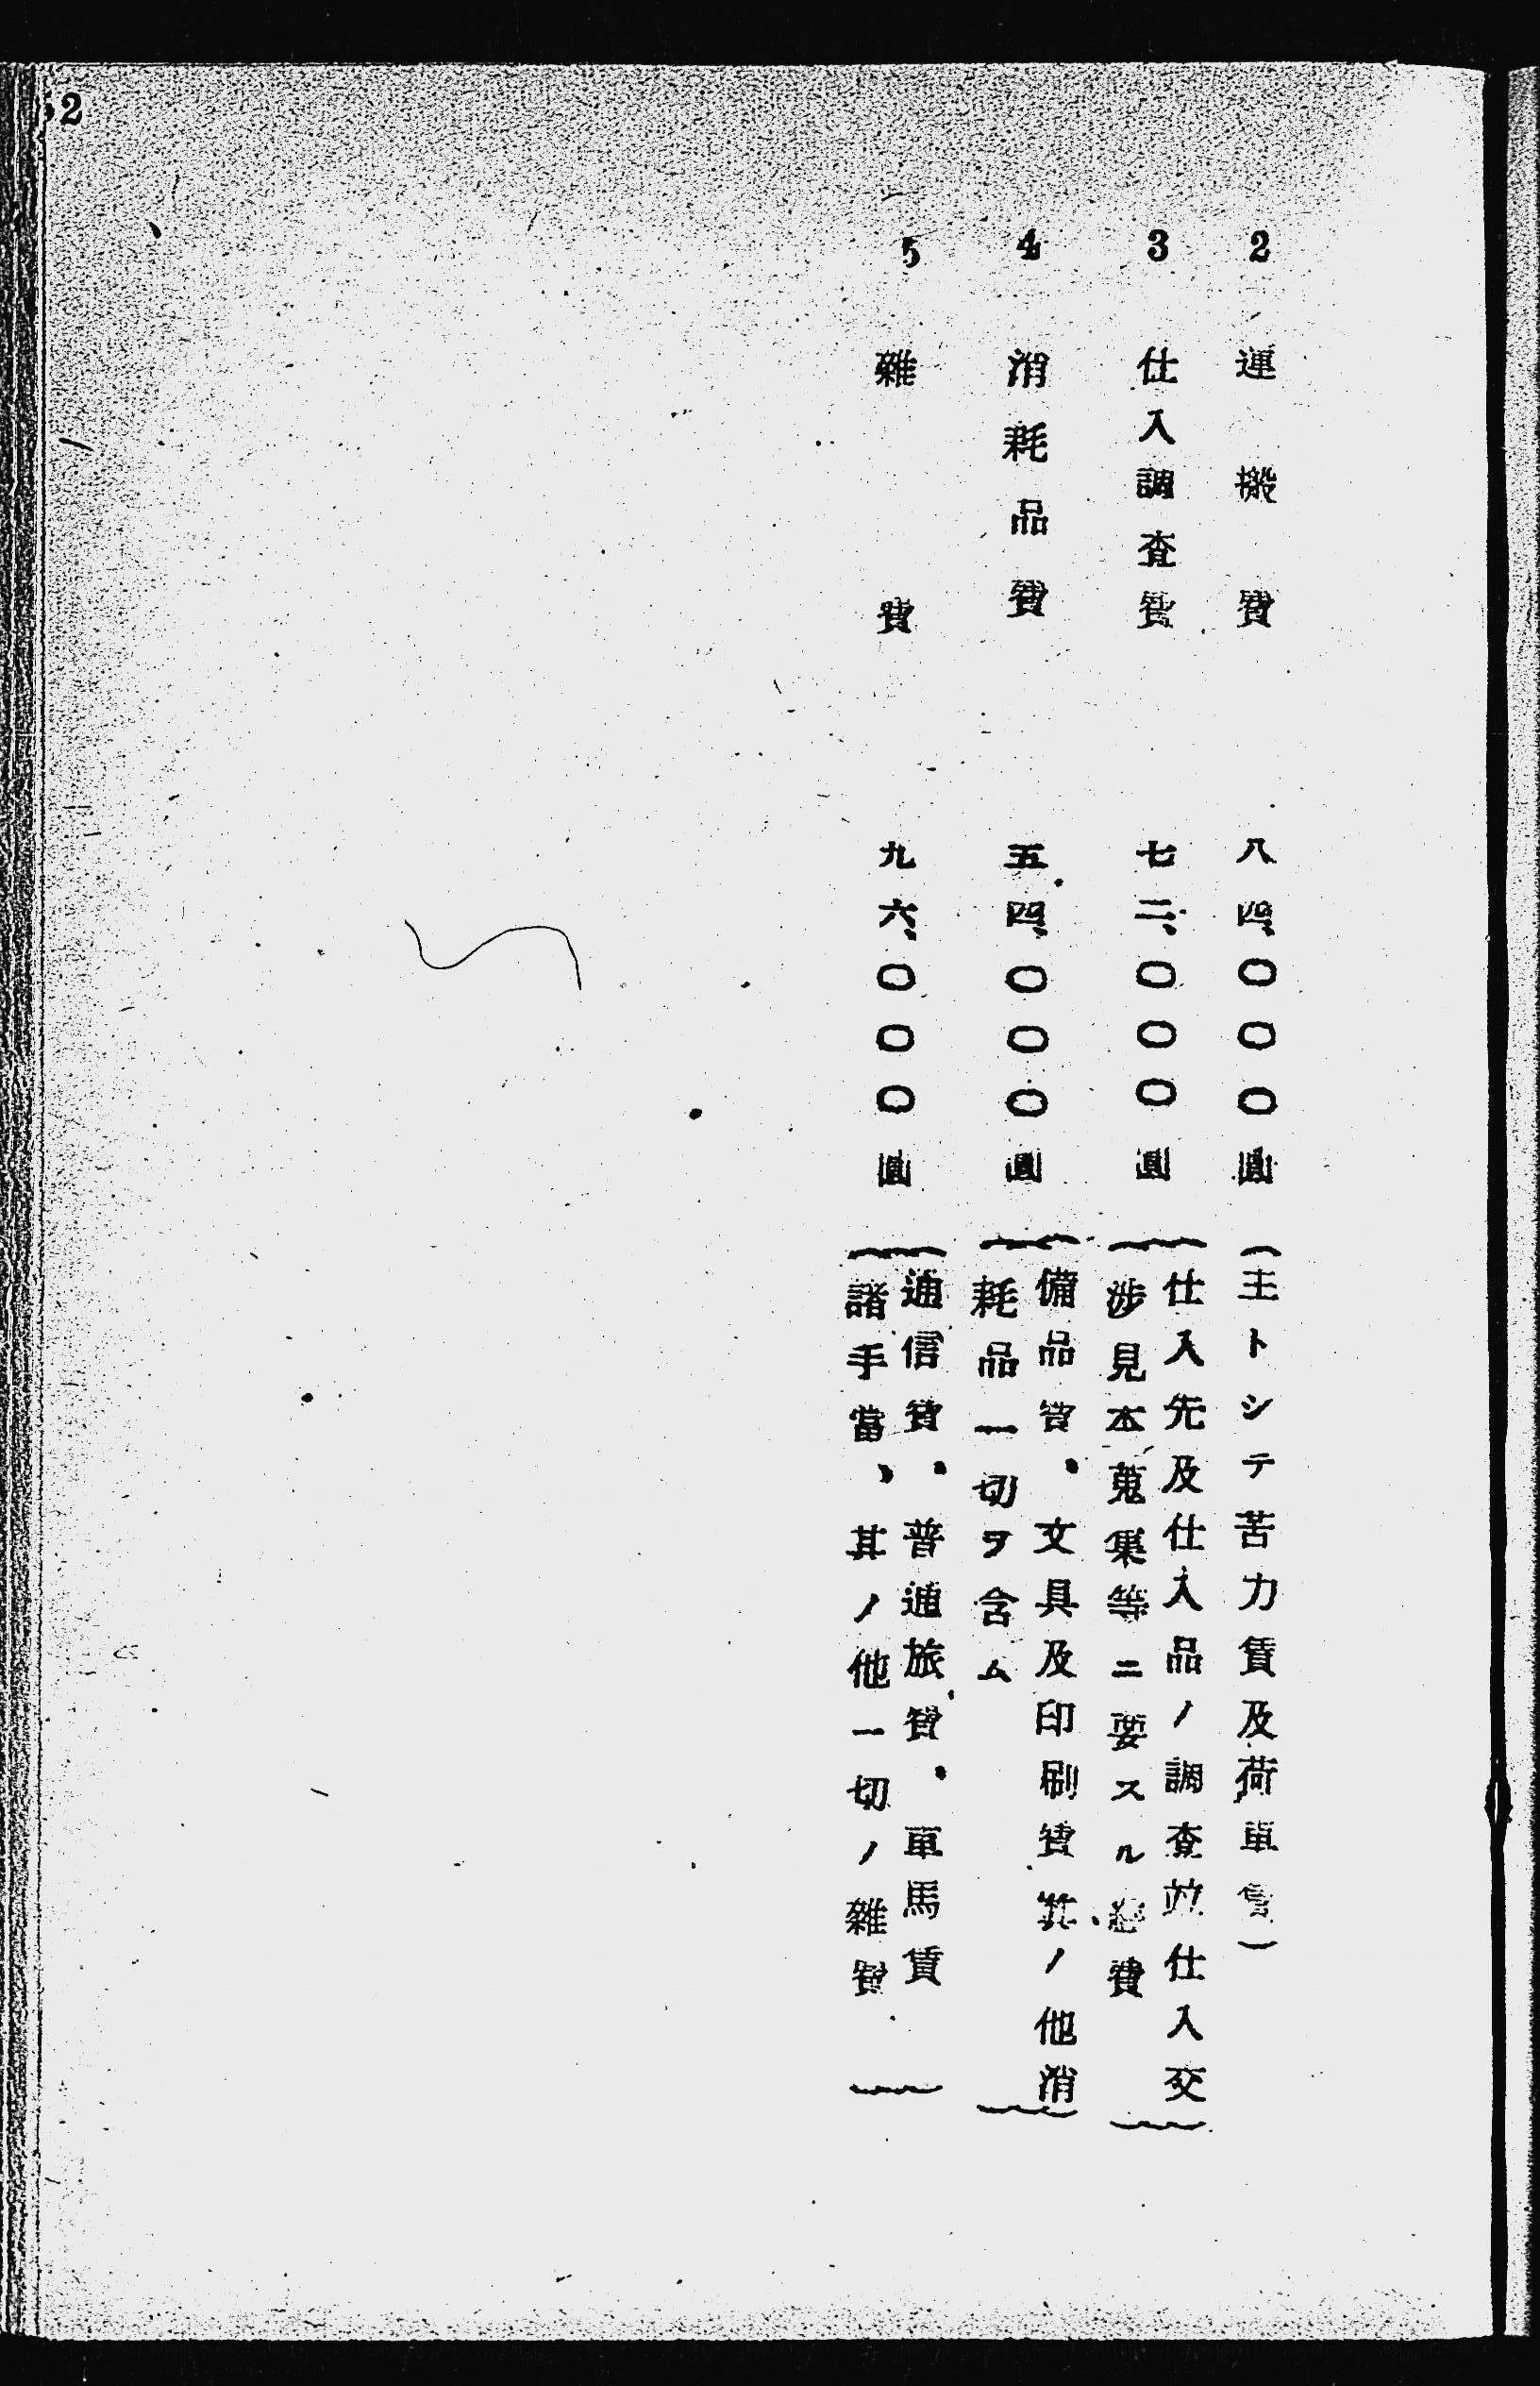 2 運搬費 八四、〇〇〇圓 (主トシテ苦力賃及荷車賃)
3 仕入調査費 七二、〇〇〇圓 (仕入先及仕入品ノ調査竝仕入交
渉見本蒐集等ニ要スル 費)
4 消耗品費 五四、〇〇〇圓 (備品費、文具及印刷費其ノ他消
耗品一切ヲ含ム)
5 雜費 九六、〇〇〇圓 (通信費、普通旅費、車馬賃
諸手當、其ノ他一切ノ雜費)
52